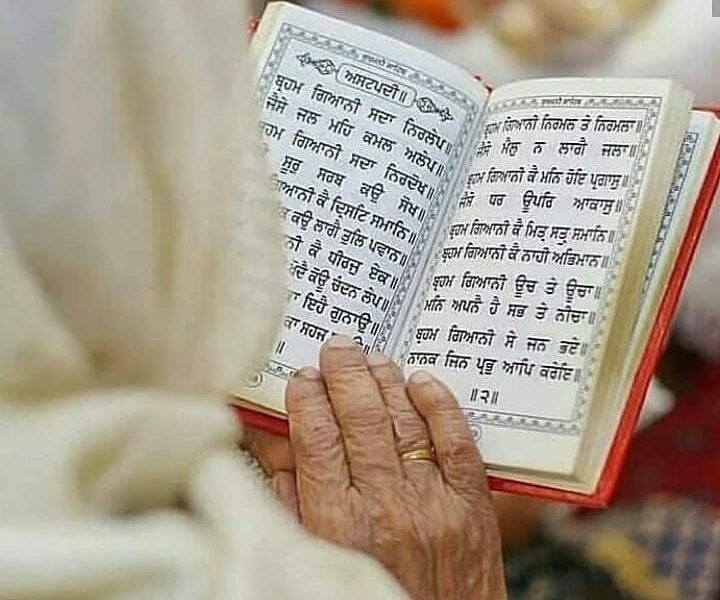 ਅਸਟਪਦੀ॥
ਬ੍ਰਹਮ ਗਿਆਨੀ ਸਦਾ ਨਿਰਲੇਪ॥
ਜੈਸੇ ਜਲ ਮਹਿ ਕਮਲ ਅਲੇਪ॥
ਗਿਆਨੀ ਸਦਾ ਨਿਰਦੋਖ॥
ਸੂਰੁ ਸਰਬ ਕਉ ਸੋਖ॥
ਕੈ ਦ੍ਰਿਸਟਿ ਸਮਾਨਿ॥
ਕਉ ਲਾਗੈ ਤੁਲਿ ਪਵਾਨ॥
ਕੈ ਧੀਰਜੁ ਏਕ॥
ਕੋਊ ਚੰਦਨ ਲੇਪ॥
ਇਹੈ ਗੁਨਾਉ॥
ਕਾ ਸਹਜ
॥
ਬ੍ਰਹਮ ਗਿਆਨੀ ਨਿਰਮਲ ਤੇ ਨਿਰਮਲਾ॥
ਜੈਸੇ ਮੈਲੁ ਨ ਲਾਗੈ ਜਲਾ॥
ਬ੍ਰਹਮ ਗਿਆਨੀ ਕੈ ਮਨਿ ਹੋਇ ਪ੍ਰਗਾਸੁ॥
ਜੈਸੇ ਧਰ ਊਪਰਿ ਆਕਾਸੁ॥
ਬ੍ਰਹਮ ਗਿਆਨੀ ਕੈ ਮਿਤ੍ਰ ਸਤ੍ਰੁ ਸਮਾਨਿ॥
ਬ੍ਰਹਮ ਗਿਆਨੀ ਕੈ ਨਾਹੀ ਅਭਿਮਾਨ॥
ਬ੍ਰਹਮ ਗਿਆਨੀ ਊਚ ਤੇ ਊਚਾ॥
ਮਨਿ ਅਪਨੈ ਹੈ ਸਭ ਤੇ ਨੀਚਾ॥
ਬ੍ਰਹਮ ਗਿਆਨੀ ਸੇ ਜਨ ਭਏ॥
ਨਾਨਕ ਜਿਨ ਪ੍ਰਭੁ ਆਪਿ ਕਰੇਇ॥
॥੨॥